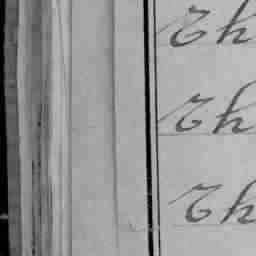 Th
Th
Th